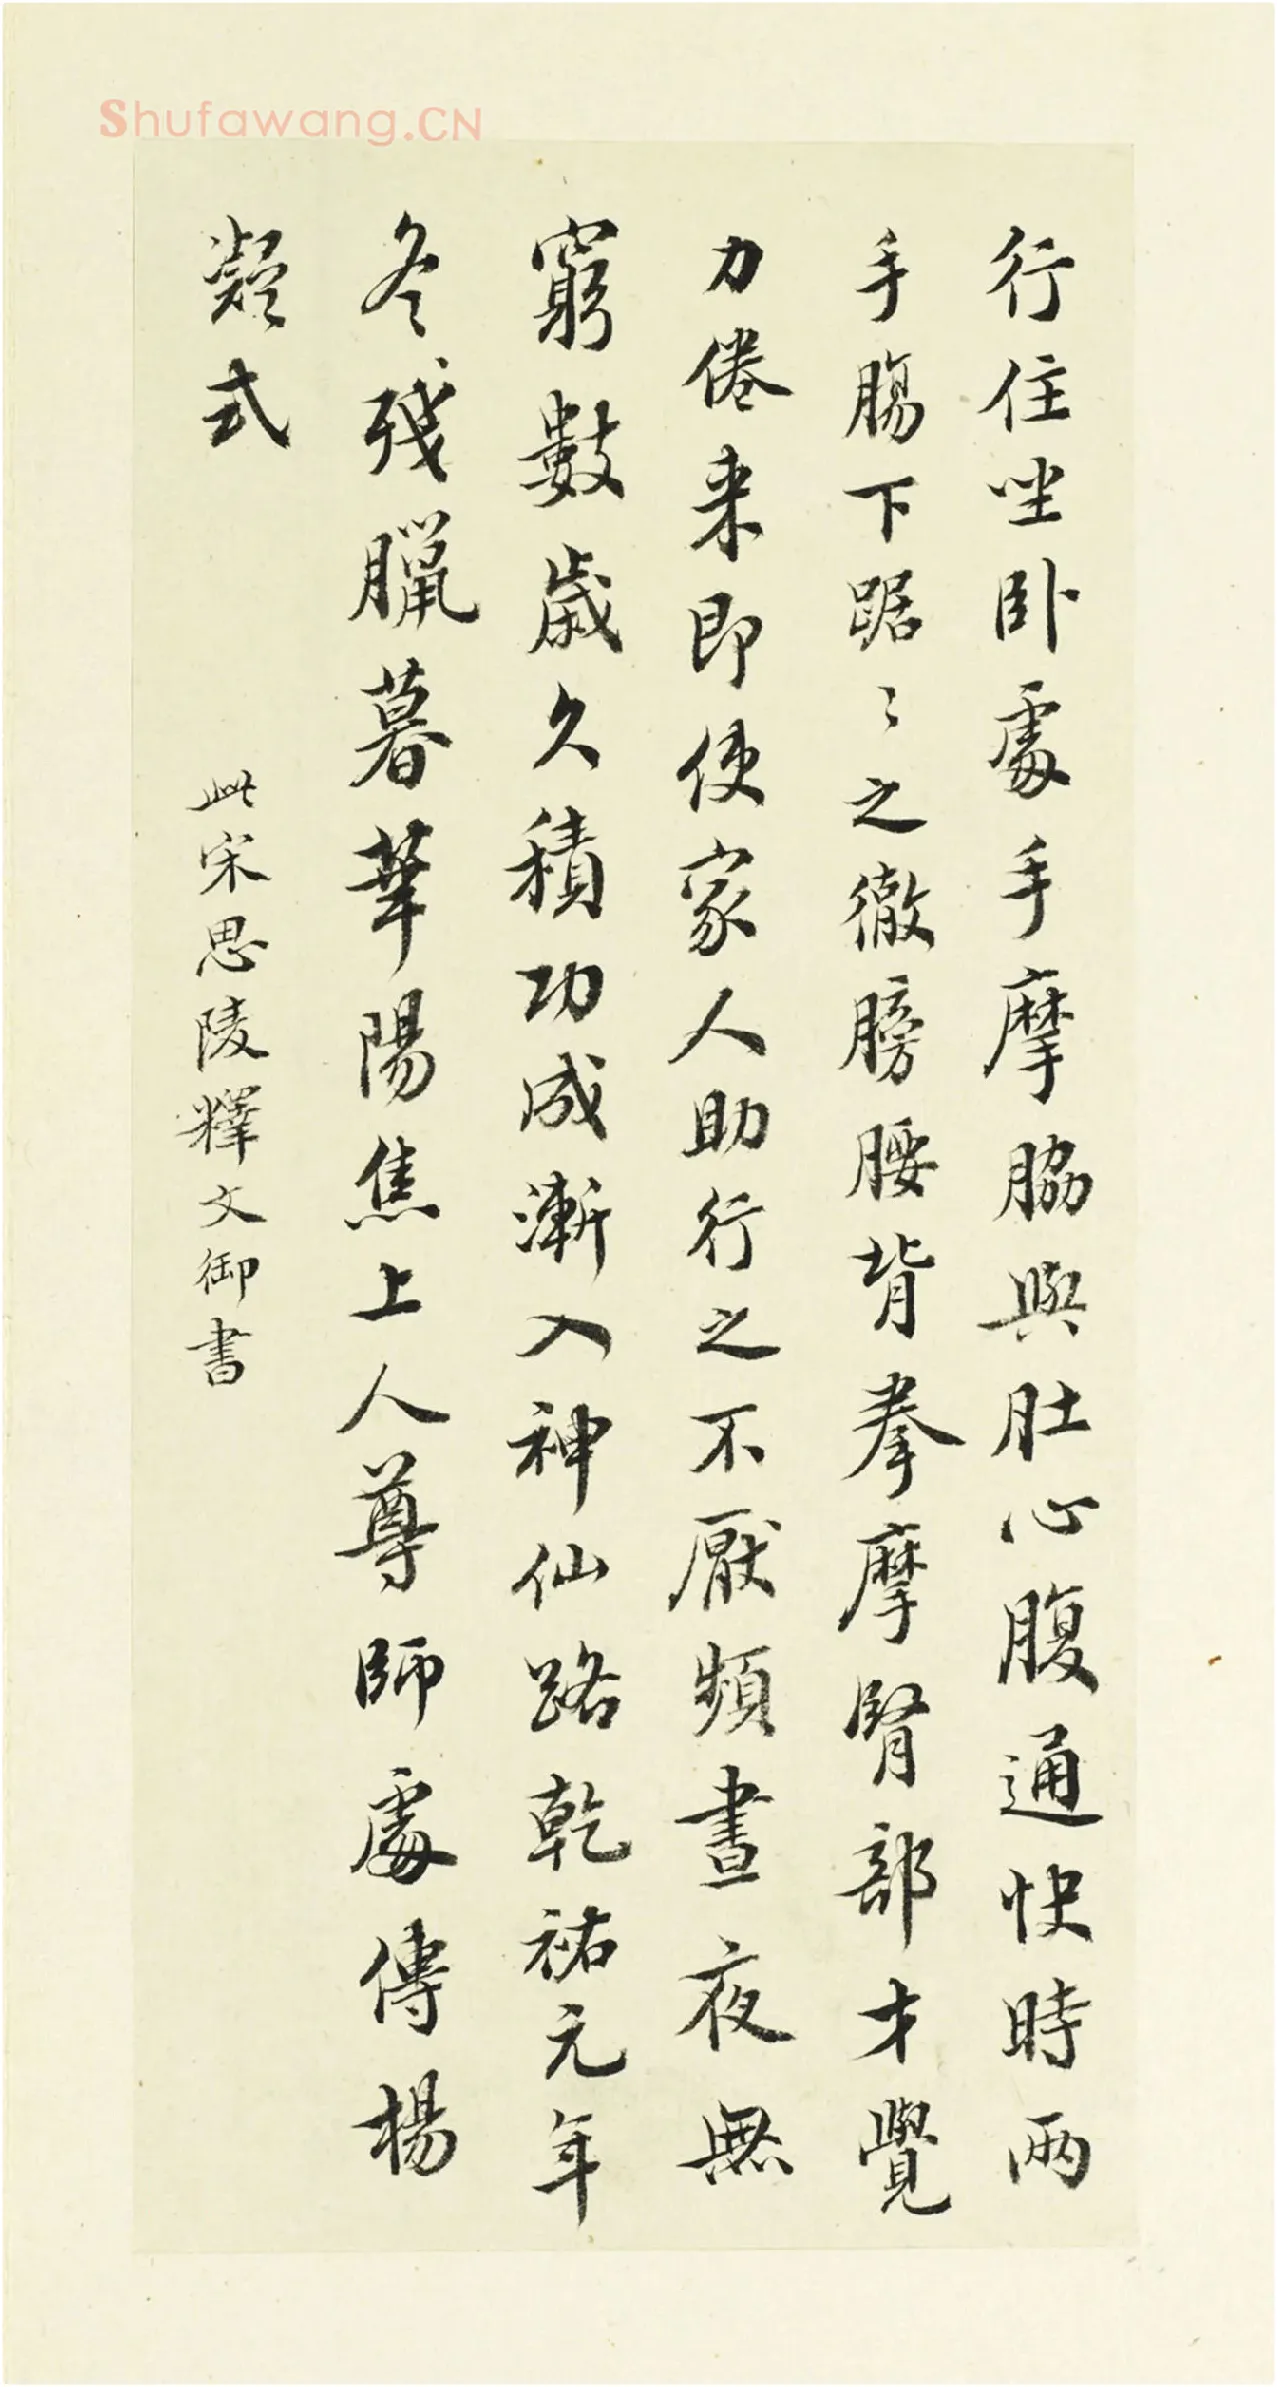 Shufawang.CN
行住坐卧處手摩脇與肚心腹通快時兩
手腸下踞〻之徹膀腰背拳摩腎部才覺
力倦来即使家人助行之不厭頻晝夜無
窮數歲久積功成漸入神仙路乾祐元年
冬殘臘暮華陽焦上人尊師處傳楊
凝式
此宋思陵釋文御書